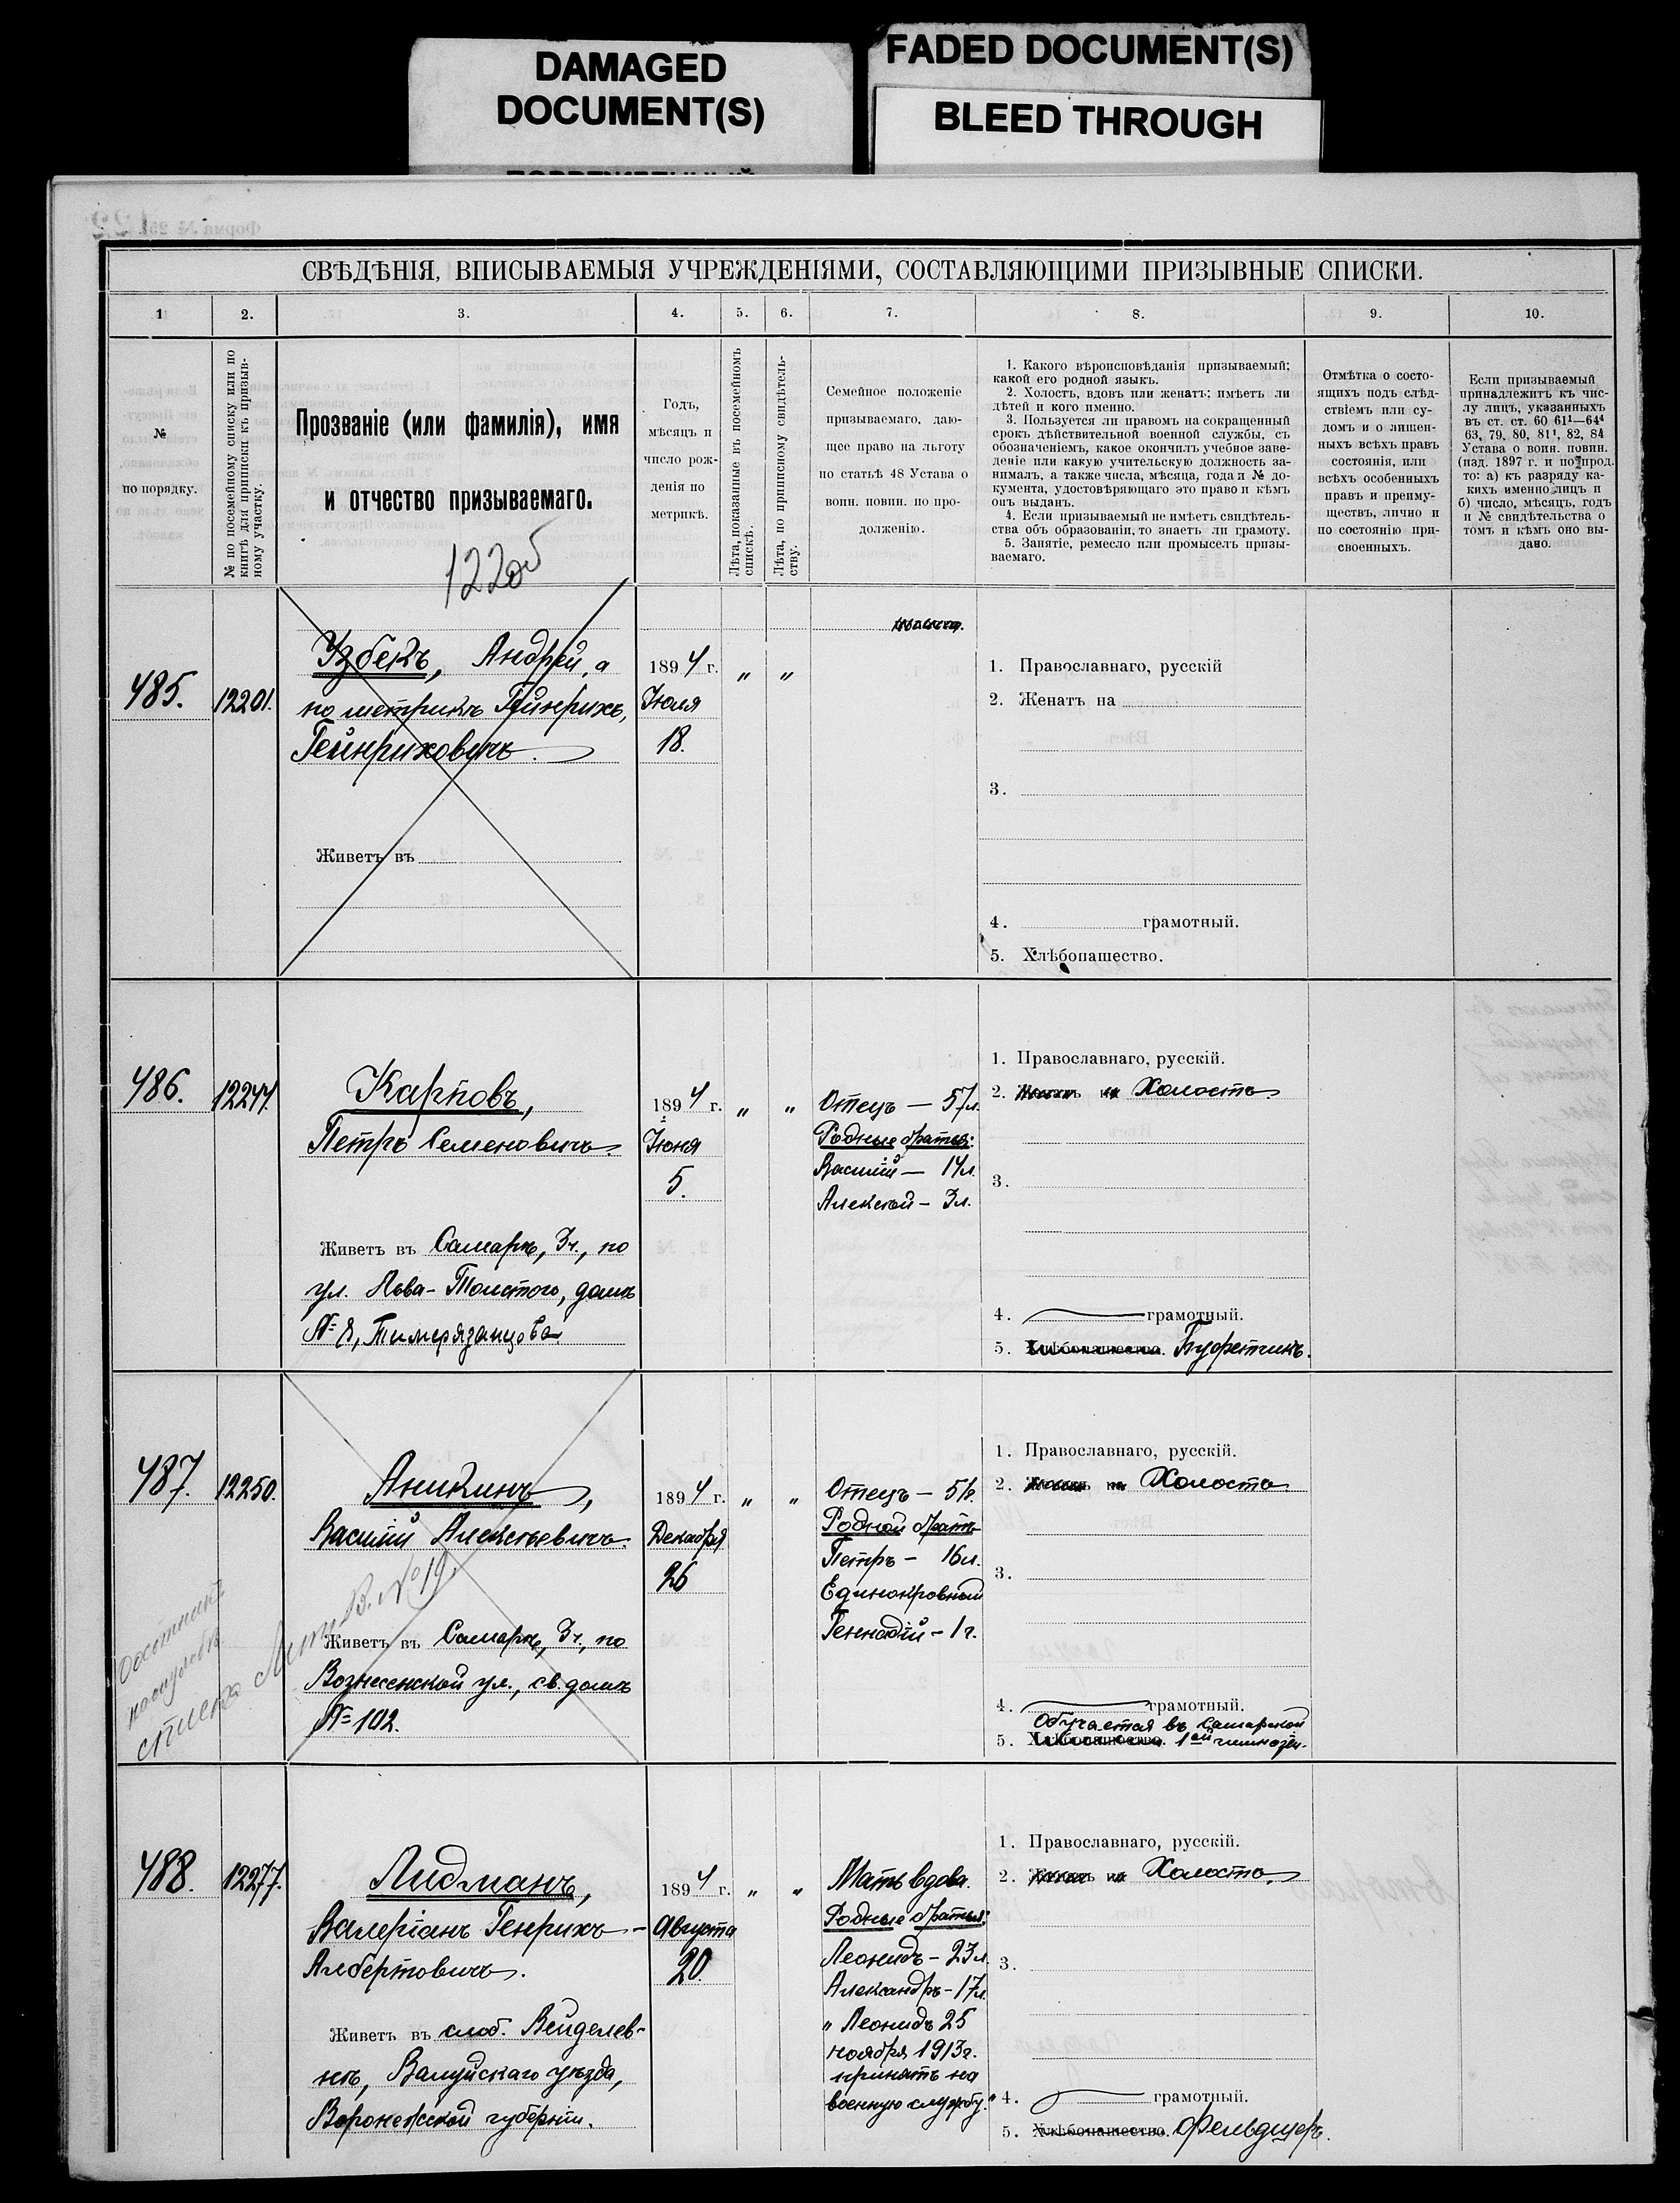 DAMAGED
DOCUMENT(S)
FADED DOCUMENT(S)
BLEED THROUGH
СВѢДѢНІЯ, ВПИСЫВАЕМЫЯ УЧРЕЖДЕНІЯМИ, СОСТАВЛЯЮЩИМИ ПРИЗЫВНЫЕ СПИСКИ.
1 2. 3. 4. 5. 6. 7. 8. 9. 10.
№
по порядку.
№ по посемейному списку или по
книгѣ для приписки къ призыв-
ному участку.
Прозваніе (или фамилія), имя
и отчество призываемаго.
Годъ,
мѣсяцъ и
число рож-
денія по
метрикѣ.
Лѣта, показанныe въ посемейномъ
спискѣ.
Лѣта, по приписному свидѣтель-
ству.
Семейное положеніе
призываемаго, даю-
щее право на льготу
по статьѣ 48 Устава о
воин. повин. по про-
долженію.
1. Какого вѣроисповѣданія призываемый;
какой его родной языкъ.
2. Холостъ, вдовъ или женатъ; имѣетъ ли
дѣтей и кого именно.
3. Пользуется ли правомъ на сокращенный
срокъ дѣйствительной военной службы, съ
обозначеніемъ, какое окончилъ учебное заве-
деніе или какую учительскую должность за-
нималъ, а также числа, мѣсяца, года и № до-
кумента, удостовѣряющаго это право и кѣмъ
онъ выданъ.
4. Если призываемый не имѣетъ свидѣтель-
ства объ образованіи, то знаетъ ли грамоту.
5. Занятіе, ремесло или промыселъ призы-
ваемаго.
Отмѣтка о состо-
ящихъ подъ слѣд-
ствіемъ или су-
домъ и о лишен-
ныхъ всѣхъ правъ
состоянія, или
всѣхъ особенныхъ
правъ и преиму-
ществъ, лично и
по состоянію при-
своенныхъ.
Если призываемый
принадлежитъ къ чис-
лу лицъ, указанныхъ
въ ст. ст. 60 61¹—64⁴
63, 79, 80, 81¹, 82, 84
Устава о воин. повин.
(изд. 1897 г. и по прод.
то: а) къ разряду ка-
кихъ именно лицъ и
б) число, мѣсяцъ, годъ
и № свидѣтельства о
томъ и кѣмъ оно вы-
дано.
485. 12201.
Узбекъ, Андрей, а
по метрикѣ Гейнрихъ,
Гейнриховичъ.
Живетъ въ
1894 г.
Іюля
18.
" "
1. Православнаго, русскій
2. Женатъ на
3.
4. грамотный.
5. Хлѣбопашество.
486. 12244.
Карповъ,
Петръ Семеновичъ.
Живетъ въ Самарѣ, 3ч., по
ул. Льва-Толстого, домъ
№ 8,
1894 г.
Іюня
5.
" "
Отецъ — 57л.
Родные братья:
Василій — 14л.
Алексѣй — 3л.
1. Православнаго, русскій.
2. Холостъ
3.
4. грамотный.
5. Хлѣбопашество. Буфетчикъ.
487. 12250.
Аникинъ,
Василій Алексѣевичъ.
№ 19.
Живетъ въ Самарѣ, 3ч., по
Вознесенской ул., св. домъ
№ 102.
1894 г.
Декабря
26
" "
Отецъ — 51г.
Родной братъ
Петръ — 16л.
Единокровный
Геннадій — 1г.
1. Православнаго, русскій.
2. Холостъ
3.
4. грамотный.
Обучается въ Самарской
5. Хлѣбопашество. 1ой гимназіи.
488. 12277.
Лидманъ,
Валеріанъ Генрихъ-
Албертовичъ.
Живетъ въ слоб. Вейделев-
кѣ, Валуйскаго уѣзда,
Воронежской губерніи.
1894 г.
Августа
20.
" "
Мать вдова.
Родные братья:
Леонидъ — 23л.
Александръ — 17л.
" Леонидъ 25
ноября 1913г.
принятъ на
военную службу."
1. Православнаго, русскій.
2. Холостъ.
3.
4. грамотный.
5. Хлѣбопашество. Фельдшеръ.